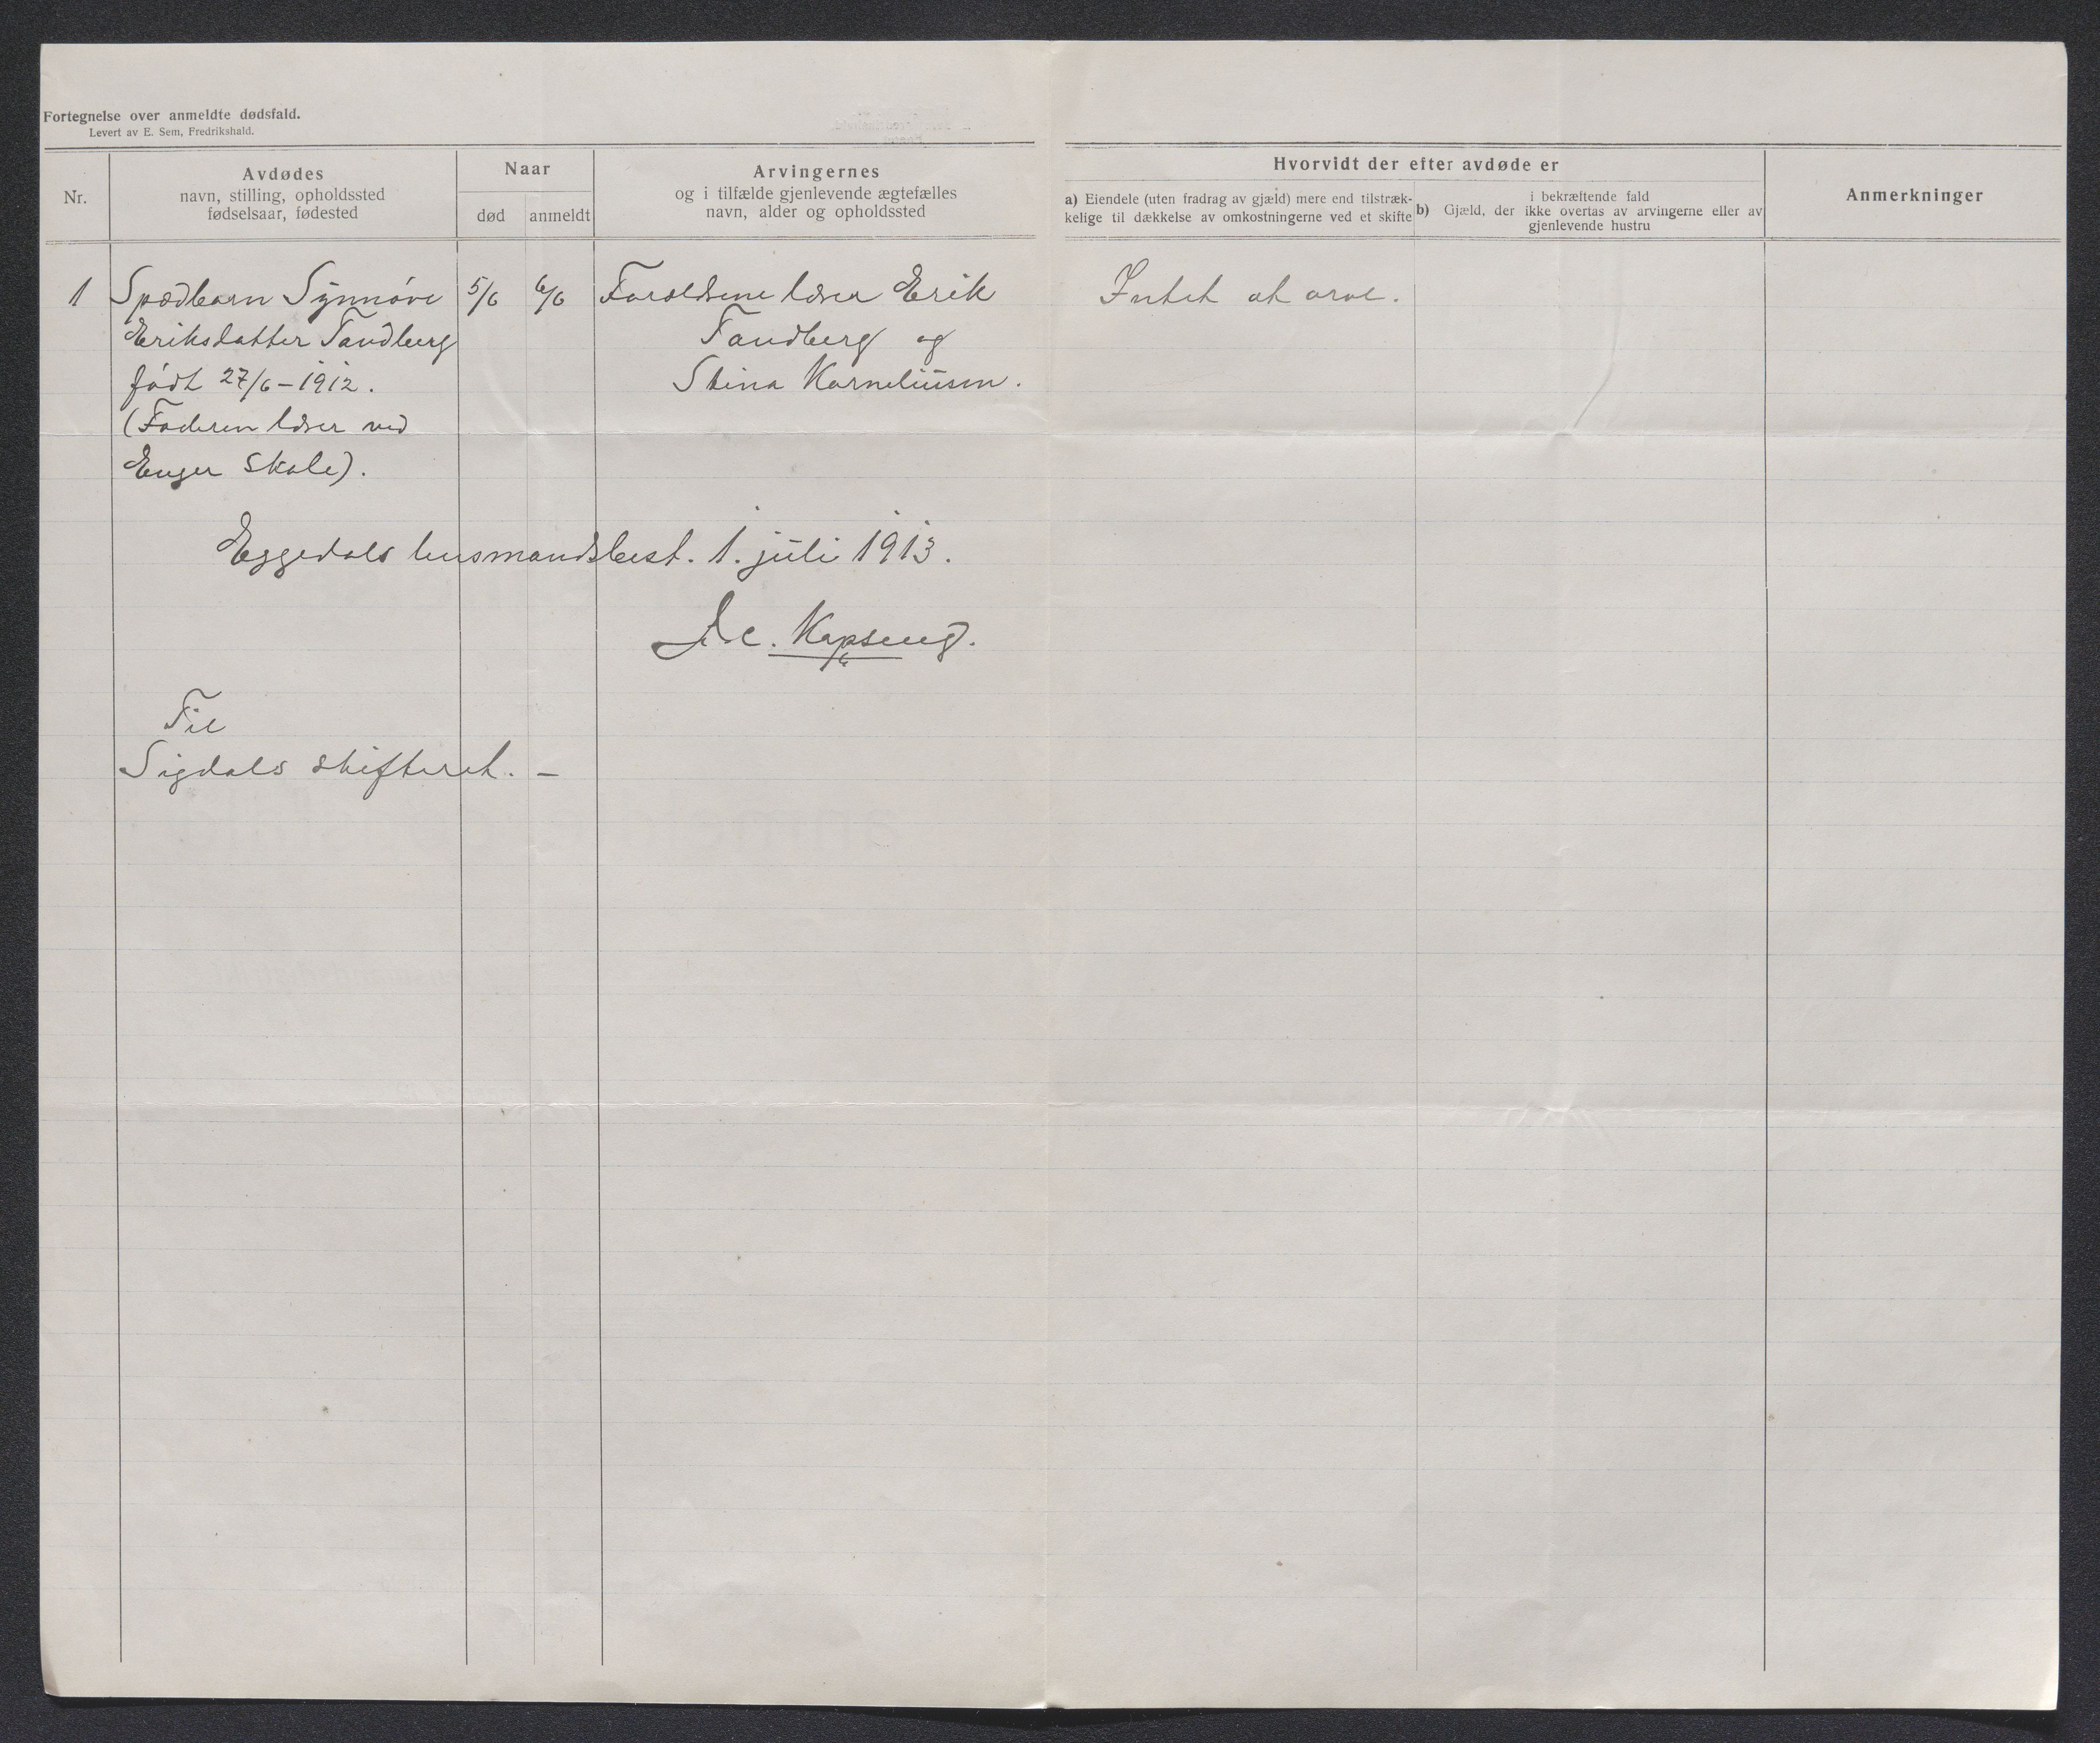 Fortegnelse over anmeldte dødsfald.
Levert av E. Sem, Fredrikshald.
Nr.
Avdødes
navn, stilling, opholdssted
fødselsaar, fødested
Naar
død
anmeldt
Arvingernes
og i tilfælde gjenlevende ægtefælles
navn, alder og opholdssted
Hvorvidt der efter avdøde er
a) Eiendele (uten fradrag av gjæld) mere end tilstræk-
kelige til dækkelse av omkostningerne ved et skifte
b) Gjæld, der
i bekræftende fald
ikke overtas av arvingerne eller av
gjenlevende hustru
Anmerkninger
1
Spædbarn Synnøve
Eriksdatter Tandberg
født 27/6 - 1912.
(Faderen lærer ved
Enger skole).
5/6
6/6
Forældrene lærer Erik
Tandberg og
Stina Korneliusen.
Intet at arve.
Eggedals lensmandsbest. 1. juli 1913.
Kopseng.
Til
Sigdals skifteret. -